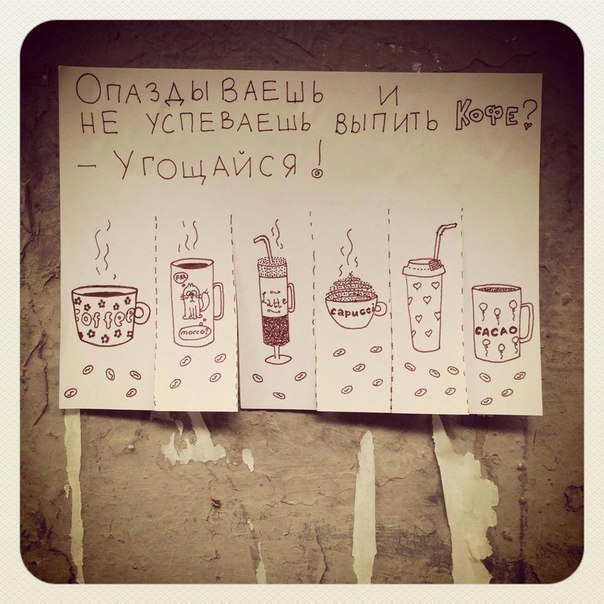 Опаздываешь и
не успеваешь выпить кофе?
– Угощайся!
coffee
mocco?
Latte
capucc
cacao